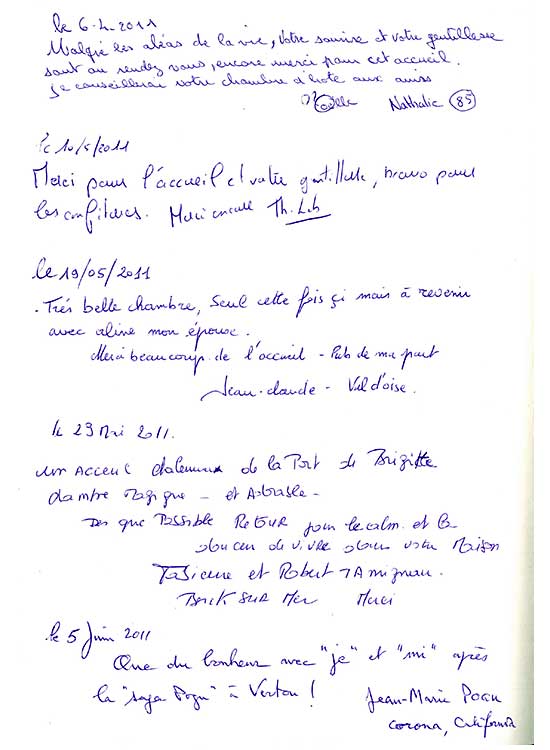 le 6-4-2011
Malgré les aléas de la vie, votre sourire et votre gentillesse
sont au rendez vous, encore merci pour cet accueil.
Je conseillerai votre chambre d'hôte aux amis
Nathalie 85
le 10/5/2011
Merci pour l'accueil et votre gentillesse, bravo pour
les confitures. Merci encore
le 19/05/2011
. Très belle chambre, Seul cette fois çi mais à revenir
avec aline mon épouse.
Merci beaucoup de l'accueil - Pub de ma part
Jean-claude - Val d'oise.
le 23 Mai 2011.
un Acceuil chaleureux de la Part de Brigitte
chambre Magique - et Adorable -
Des que Possible Retour pour le calme et la
douceur de vivre dans votre Maison
et Robert
Berck SUR Mer Merci
le 5 Juin 2011
Que du bonheur avec "je" et "mi" après
la "saga Pogu" à Verton !
Jean-Marie Pogu
Corona, California